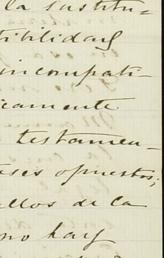 la sustitu-
tibilidad
incompati-
icamente
testamen-
eses opuestos;
ellos de la
no hay